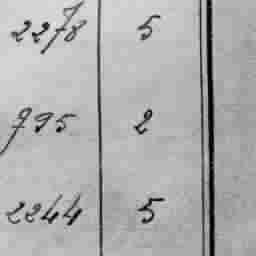 2278 5
795 2
2244 5